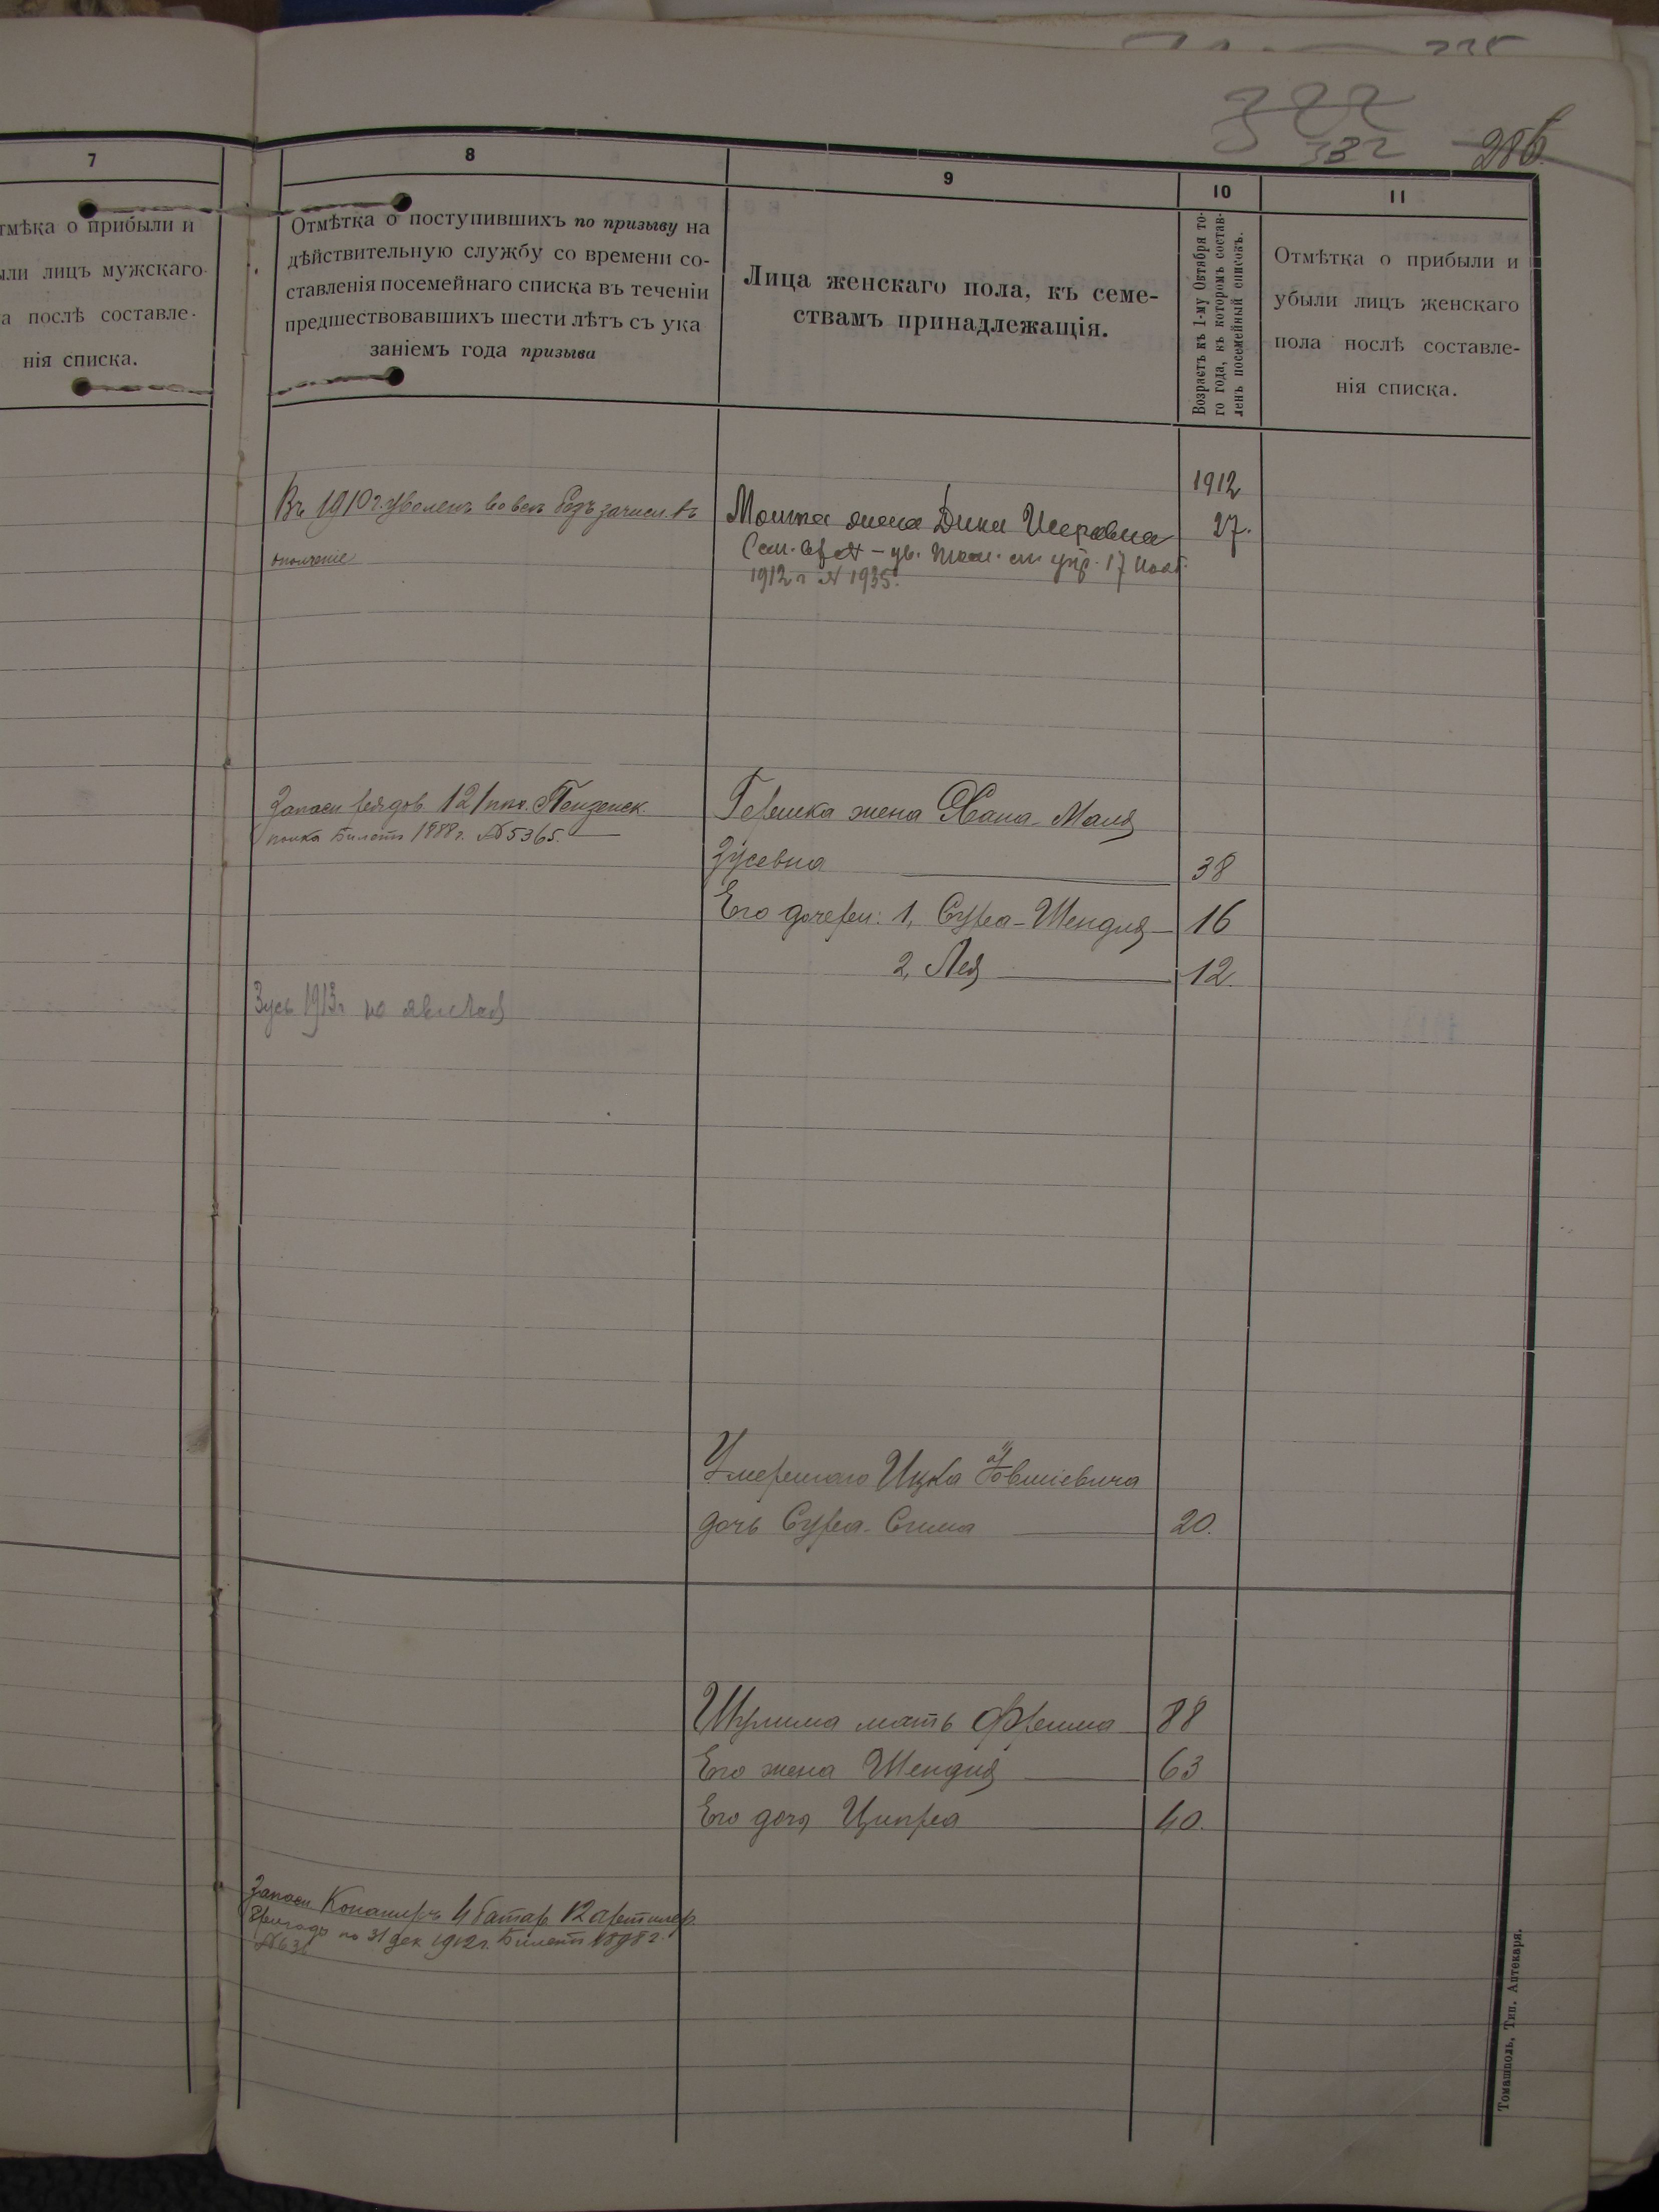 322
332
286.
7
8
9
10
11
тмѣка о прибыли и
ыли лицъ мужскаго
а послѣ составле-
нія списка.
Отмѣтка о поступившихъ по призыву на
дѣйствительную службу со времени со-
ставленія посемейнаго списка въ теченіи
предшествовавшихъ шести лѣтъ съ ука
заніемъ года призыва
Лица женскаго пола, къ семе-
ствамъ принадлежащія.
Возрастъ къ 1-му Октября то-
го года, къ которомъ состав-
ленъ посемейный списокъ.
Отмѣтка о прибыли и
убыли лицъ женскаго
пола послѣ составле-
нія списка.
Въ 1910 г. уволенъ вовсе безъ зачисл. въ
ополченіе
1912
Мошка жена Дина Шеровна 27.
17 Нояб.
1912 г № 1935.
Запасн рядов. 121 пех. Пензенск.
полка Билетъ 1888 г. № 5365.
Гершка жена Хана-Маля
Зусевна 38
Его дочери: 1, Сура-Шендля 16
2, Лея 12.
Зусь 1913 г не явился
Умершаго Ицка Іовшіевича
дочь Сура-Сима 20.
Шулима мать Фрейма 88
Его жена Шендля 63
Его дочь Ципра 40.
Запасн Канониръ 4 батар 12 артилер
бригады по 31 дек 1912 г. Билетъ 1898 г.
№ 631
Томашполь, Тип. Аптекаря.